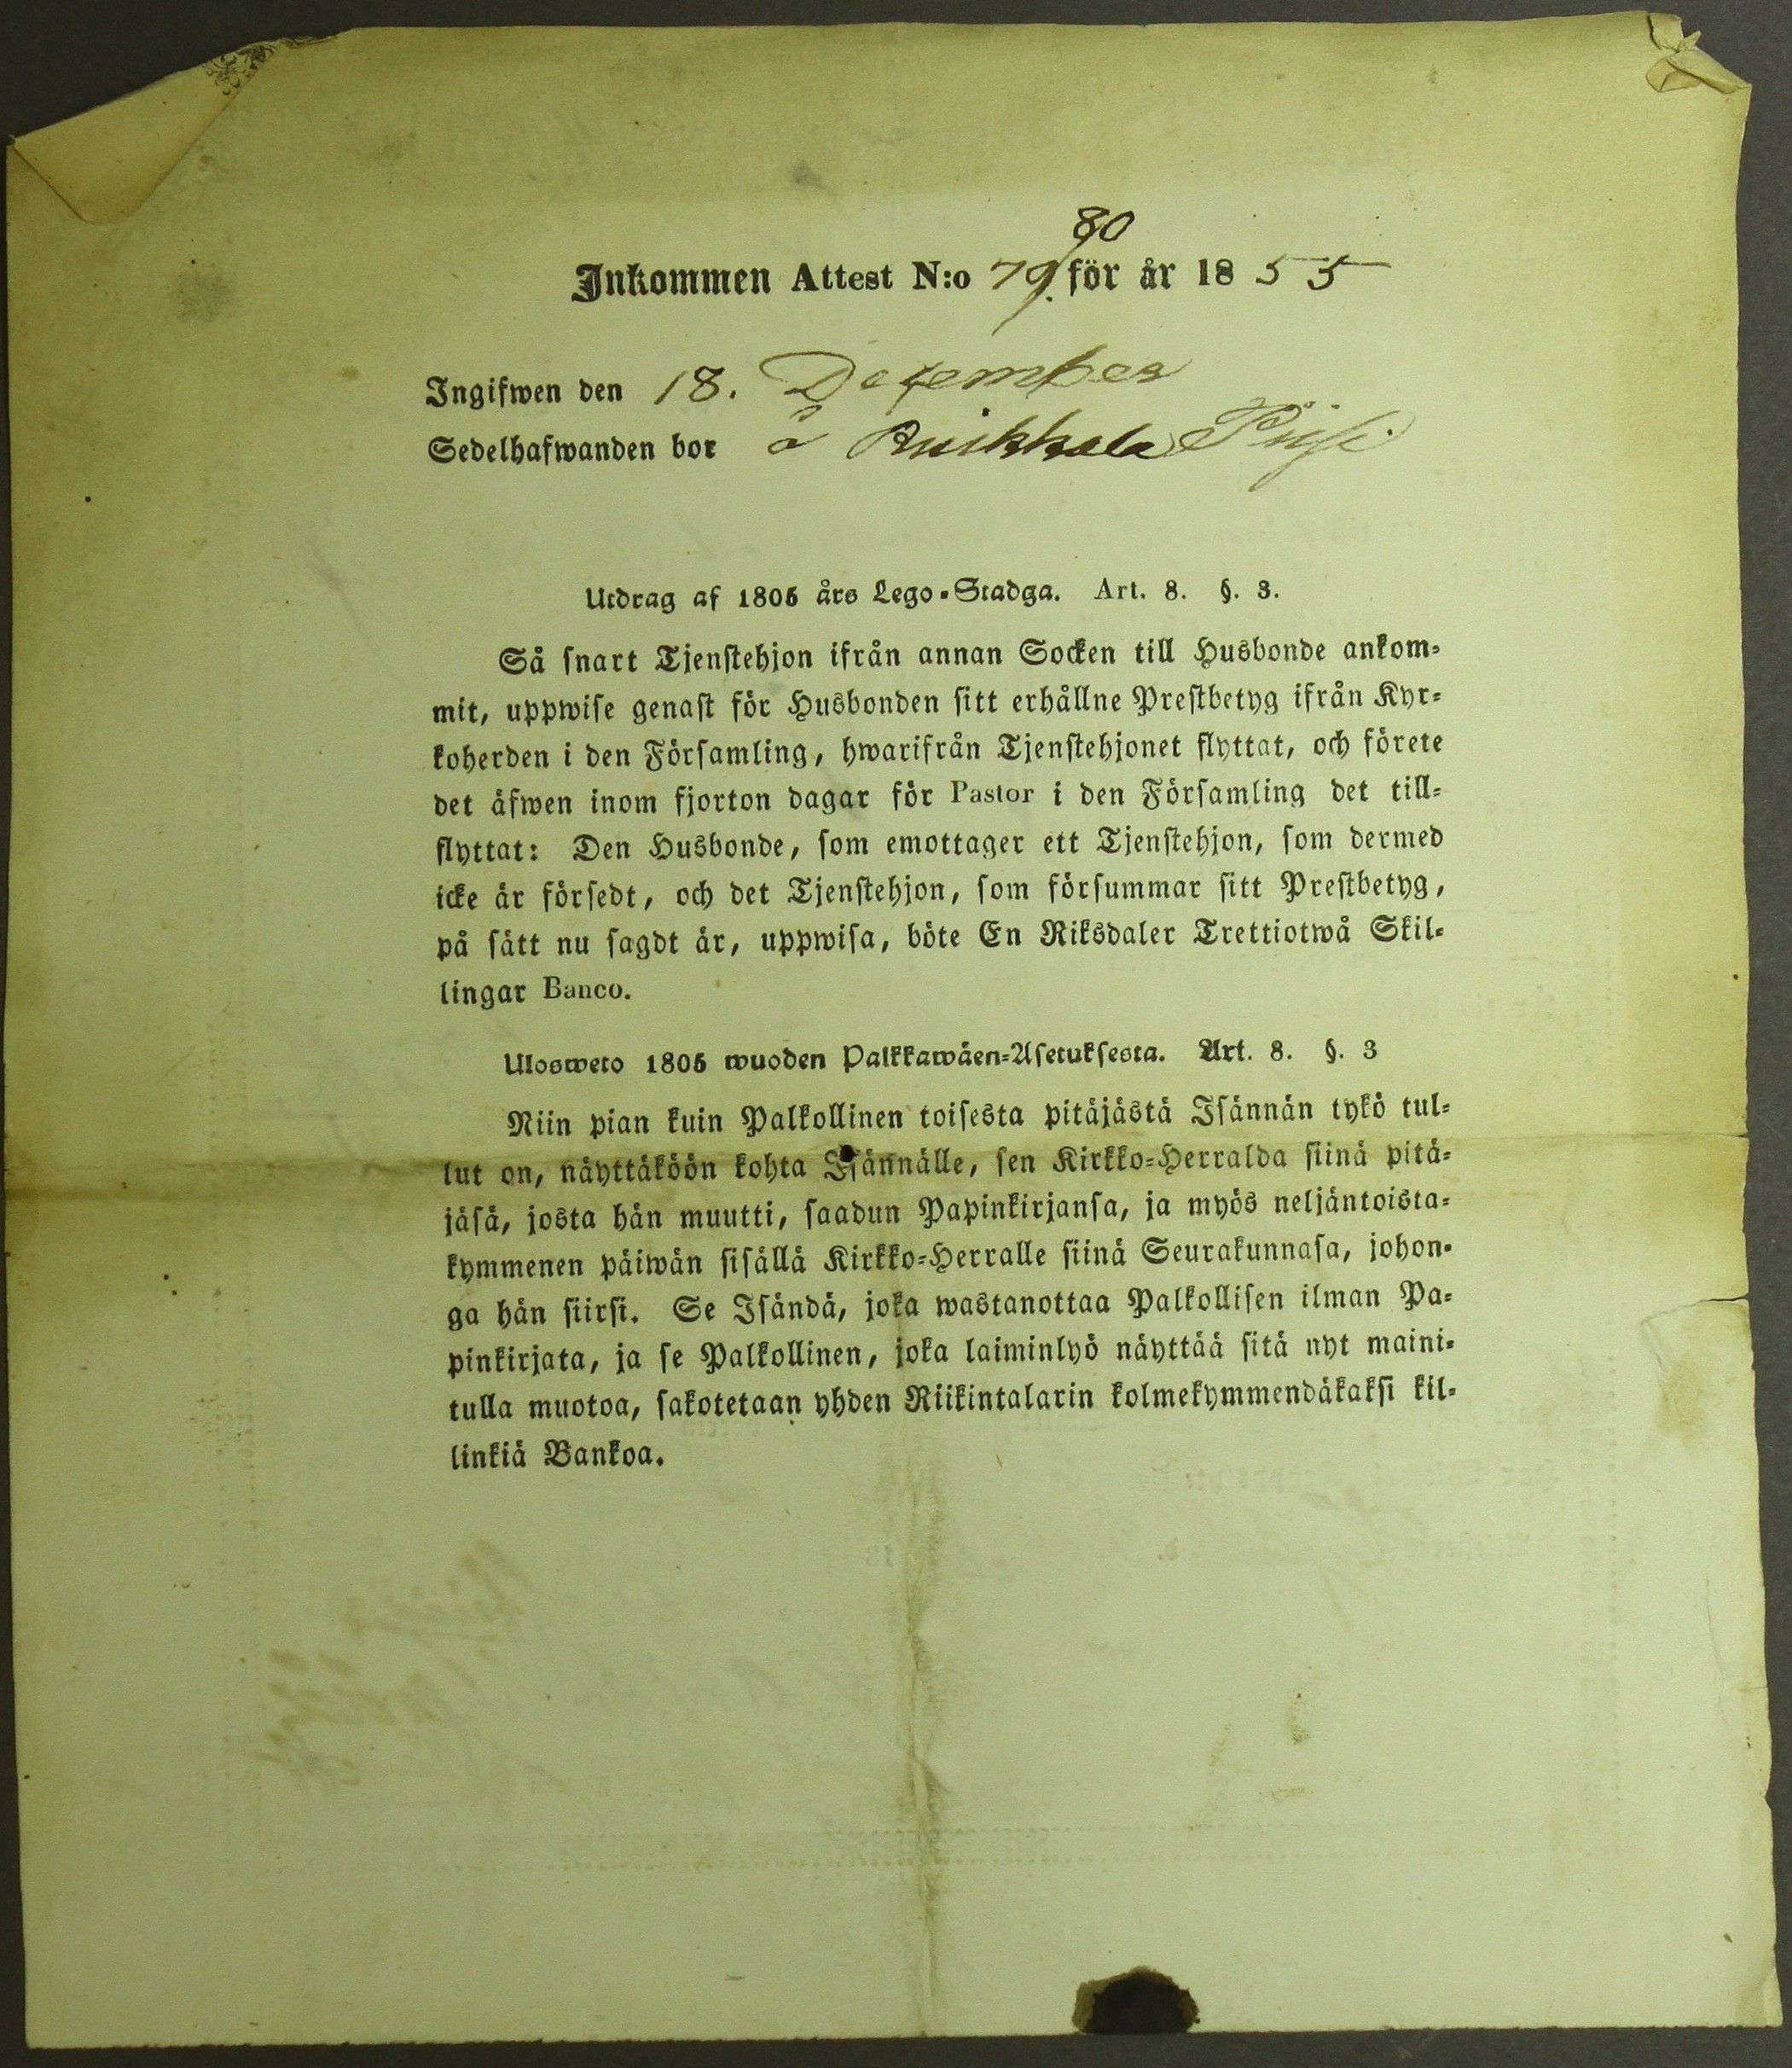 80
Inkommen Attest N:o 79. för år 1855
Ingifwen den 18. December
Sedelhafwanden bor å Anikkala
Utdrag af 1805 års Lego-Stadga. Art. 8. §. 3.
Så snart Tjenstehjon ifrån annan Socken till Husbonde ankom-
mit, uppwise genast för Husbonden sitt erhållne Prestbetyg ifrån Kyr-
koherden i den Församling, hwarifrån Tjenstehjonet flyttat, och förete
det äfwen inom fjorton dagar för Pastor i den Församling det till-
flyttat: Den Husbonde, som emottager ett Tjenstehjon, som dermed
icke är försedt, och det Tjenstehjon, som försummar sitt Prestbetyg,
på sätt nu sagdt är, uppwisa, böte En Riksdaler Trettiotwå Skil-
lingar Banco.
Ulosweto 1805 wuoden Palkkawäen-Asetuksesta. Art. 8. §. 3
Niin pian kuin Palkollinen toisesta pitäjästä Isännän tykö tul-
lut on, näyttäköön kohta Isännälle, sen Kirkko-Herralda siinä pitä-
jäsä, josta hän muutti, saadun Papinkirjansa, ja myös neljäntoista-
kymmenen päiwän sisällä Kirkko-Herralle siinä Seurakunnasa, johon-
ga hän siirsi. Se Isändä, joka wastanottaa Palkollisen ilman Pa-
pinkirjata, ja se Palkollinen, joka laiminlyö näyttää sitä nyt maini-
tulla muotoa, sakotetaan yhden Riikintalarin kolmekymmendäkaksi kil-
linkiä Bankoa.